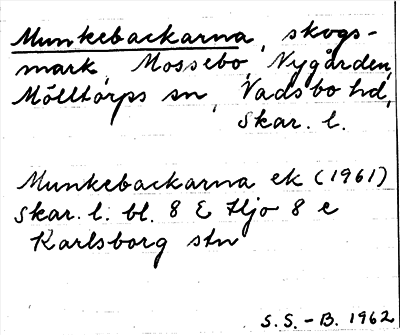 Munkebackarna, skogs-
mark, Mossebo, Nygården,
Mölltorps sn, Vadsbo hd,
Skar. l.
Munkebackarna ek (1961)
Skar. l. bl. 8 E Hjo 8 e
Karlsborg stn
S.S. - B. 1962